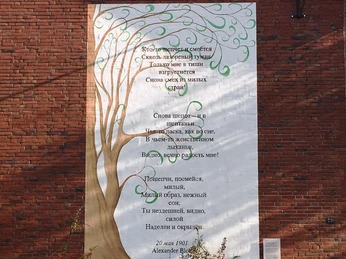 Кто-то шепчет и смеется
Сквозь лазоревый туман.
Только мне в тиши
взгрустнется
Снова смех из милых
стран!
Снова шепот — и в
шептаньи
Чья-то ласка, как во сне,
В чьем-то женственном
дыханьи,
Видно, вечно радость мне!
Пошепчи, посмейся,
милый,
Милый образ, нежный
сон;
Ты нездешней, видно,
силой
Наделен и окрылен.
20 мая 1901
Alexander Blok